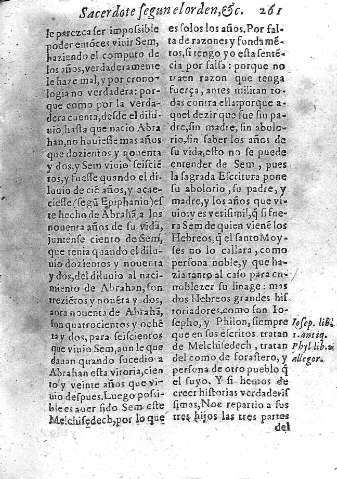 Sacerdote segun el orden, &c. 261
le parezca ser impossible
poder entõces viuir Sem,
haziendo el computo de
los años, verdaderamente
le haze mal, y por crono-
logia no verdadera: por-
que como por la verda-
dera cuenta, desde el dilu-
uio, hasta que nacio Abra
han, no huuiesse mas años
que dozientos y nouenta
y dos, y Sem viuio seiscië
tos, y fuesse quando el di-
luuio de ciē años, y acae-
ciesse (segū Epiphanio) es
te hecho de Abrahā, a los
nouenta años de su vida,
juntense ciento de Sem,
que tenia quando el dilu-
uio dozientos y nouenta
y dos, del diluuio al naci-
miento de Abrahan, son
trezietos y nouēta y dos,
aora nouenta de Abrahā,
son quatrocientos y ochē
ta y dos, para seiscientos
que viuio Sem, aun le que
dauan quando sucedio a
Abrahan esta vitoria, cien
to y veinte años que vi-
uio despues. Luego possi-
ble es auer sido Sem este
Melchisedech, por lo que
es solos los años. Por fal-
ta de razones y fundamẽ-
tos, si tengo yo esta sentē-
cia por falsa: porque no
traen razon que tenga
fuerça, antes militan to-
das contra ella: porque a-
quel dezir que fue sin pa-
dre, sin madre, sin abolo-
rio, sin saber los años de
su vida, esto no se puede
entender de Sem, pues
la sagrada Escritura pone
su abolorio, su padre, y
madre, y los años que vi-
uio: y es verisimil, q̃ si fue
ra Sem de quien viene los
Hebreos, q̃ el santo Moy-
ses no lo callara, como
persona noble, y que ha-
zia tanto al caso para en-
noblezer su linage: mas
dos Hebreos grandes his
toriadores, como son Io-
sepho, y Philon, siempre
que en sus escritos tratan
de Melchisedech, tratan
del como de forastero, y
persona de otro pueblo q̃
el suyo. Y si hemos de
creer historias verdaderis
simas, Noe repartio a sus
tres hijos las tres partes
del
Iosep. lib.
1. antiq.
Phyl. lib. 2.
allegor.